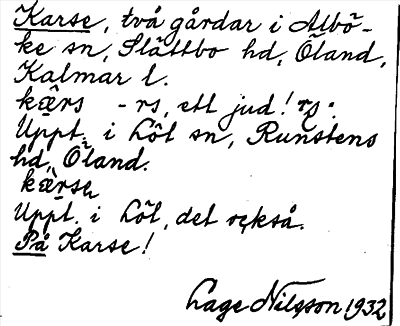 Karse, två gårdar i Albö-
ke sn, Slättbo hd, Öland,
Kalmar l.
kæ̀rs - rs, ett jud! rs:
Uppt. i Löt sn, Runstens
hd, Öland.
kæ̀rse
Uppt. i Löt, det också.
På Karse!
Lage Nilsson 1932